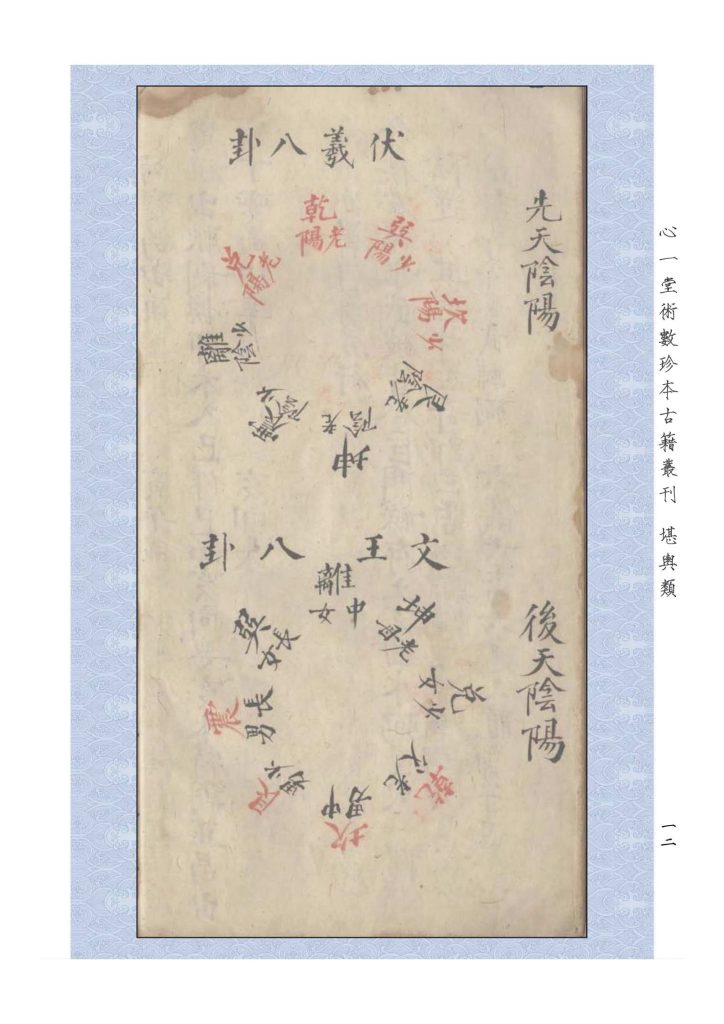 心一堂術數珍本古籍叢刊 堪輿類
一二
先天陰陽
伏羲八卦
乾老陽
巽少陽
坎少陽
艮老陰
坤老陰
震少陰
離少陰
兌老陽
後天陰陽
文王八卦
離中女
坤老母
兌少女
乾老
坎中男
艮少男
震長男
巽長女